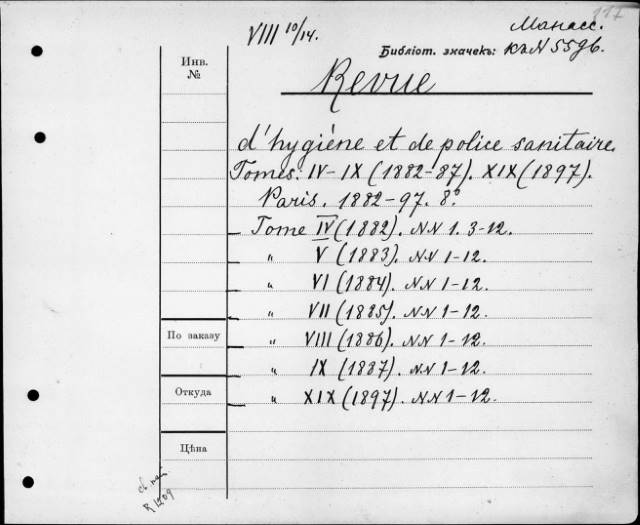 117
VIII 10/14.
Манасс.
Библіот. значекъ: къ N 5596.
Инв. №
Revue
d'hygiéne et de police sanitaire.
Tomes: IV-IX (1882-87). XIX (1897).
Paris. 1882-97. 8°
Tome IV (1882). NN 1. 3-12.
" V (1883). NN 1-12.
" VI (1884). NN 1-12.
" VII (1885). NN 1-12.
По заказу
" VIII (1886). NN 1-12.
" IX (1887). NN 1-12.
Откуда
" XIX (1897). NN 1-12.
Цѣна
R 1209